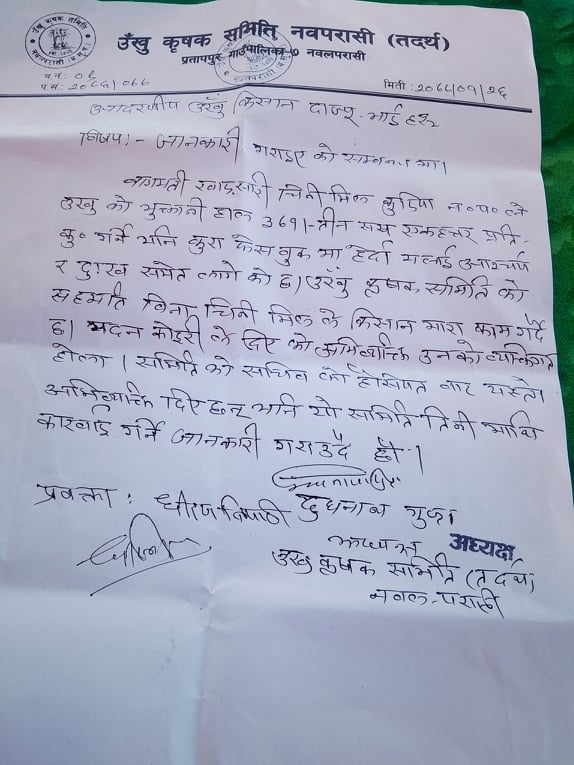 उँखु कृषक समिति नवपरासी (तदर्थ)
प्रतापपुर गाउँपालिका ७ नवलपरासी
च.नं.: ०६
प.सं.: २०७५/०७६
मिती : २०७५/०९/२६
आदरणीय उखुँ किसान दाजू-भाई हरु
विषय :- जानकारी गराइएको सम्बन्धमा।
बागमती खाद्सारी चिनी मिल कुडिया न०प० ले
उखु को भुक्तानी हाल ३७१।- तीन सय एकहत्तर प्रति-
कु० गर्ने भनि कुरा फेसबुक मा हेर्दा मलाई आश्चार्य
र दुःख समेत लागे को छ। उखुँ कृषक समिति को
सहमति विना चिनी मिल ले किसान मारा काम गर्दै
छ। मदन कोइरी ले दिए को अभिव्याक्ति उनको व्यक्तिगत
होला । समिति को सचिव को हैसियत बाट यस्तो
अभिव्याक्ति दिए हुन् भनि यो समिति तिनी माथि
कारवाहि गर्ने जानकारी गराउँदै छौ ।
प्रवक्ता : धीरज तिपाठी
दुधनाथ गुप्ता
अध्यक्ष अध्यक्ष
उखु कृषक समिति (तदर्थ)
नवल-परासी